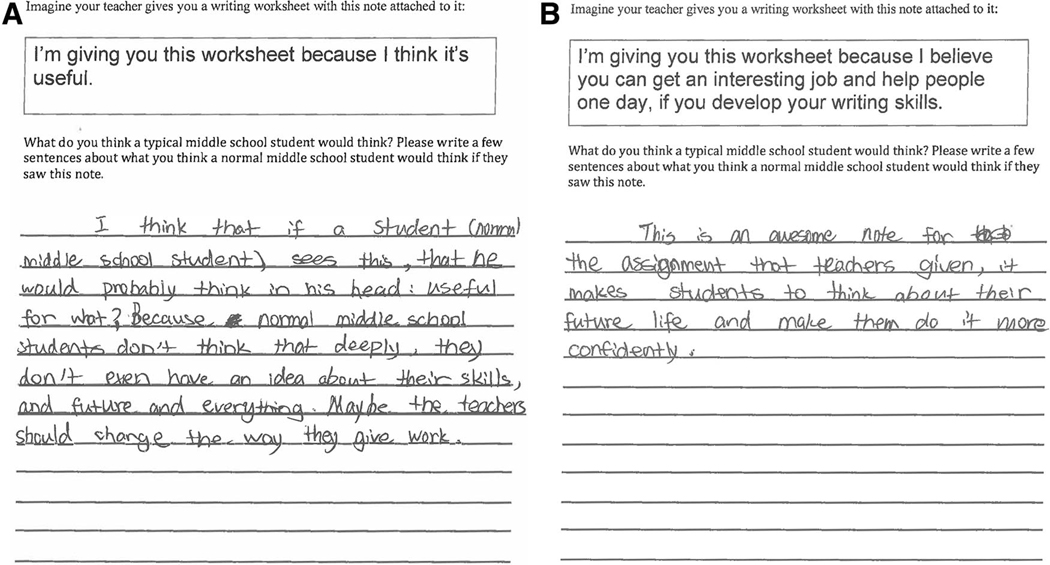 A
Imagine your teacher gives you a writing worksheet with this note attached to it:
I'm giving you this worksheet because I think it's
useful.
What do you think a typical middle school student would think? Please write a few
sentences about what you think a normal middle school student would think if they
saw this note.
I think that if a student (normal
middle school student) sees this, that he
would probably think in his head: useful
for wat? Because normal middle school
students don't think that deeply, they
don't even have an idea about their skills,
and future and everything. Maybe the teachers
should change the way they give work.
B
Imagine your teacher gives you a writing worksheet with this note attached to it:
I'm giving you this worksheet because I believe
you can get an interesting job and help people
one day, if you develop your writing skills.
What do you think a typical middle school student would think? Please write a few
sentences about what you think a normal middle school student would think if they
saw this note.
This is an awesome note for
the assignment that teachers given, it
makes students to think about their
future life and make them do it more
confidently.